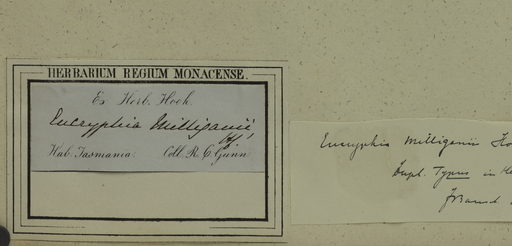 HERBARIUM REGIUM MONACENSE.
Ex Herb. Hook.
Eucryphia Milliganii,
Hab. Tasmania. Coll. R. C. Gunn
Eucryphia Milliganii Ho
Dupl. Typus in He